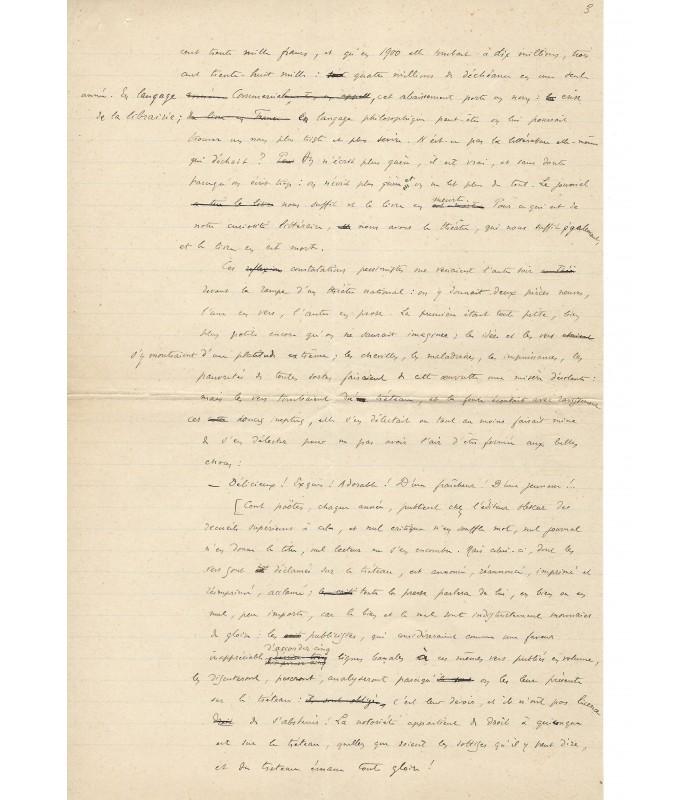 3
cent trente mille francs, et qu'en 1900 elle tombait à dix millions, trois
cent trente-huit mille : quatre millions de déchéance en une seule
année. En langage commercial, cet abaissement porte un nom : la crise
de la librairie ; en langage philosophique peut-être on lui pourrait
trouver un nom plus triste et plus sévère. N'est-ce pas la littérature elle-même
qui déchoit ? On n'écrit plus guère, il est vrai, et sans doute
parce qu'on écrit trop : on n'écrit plus guère et on ne lit plus du tout. Le journal
nous suffit et le livre en meurt. Pour ce qui est de
notre curiosité littéraire, nous avons le théâtre, qui nous suffit également,
et le livre en est mort.
Ces constatations pessimistes me venaient l'autre soir
devant la rampe d'un théâtre national : on y donnait deux pièces neuves,
l'une en vers, l'autre en prose. La première était toute petite, bien
plus petite encore qu'on ne saurait imaginer ; les idées et les vers
s'y montraient d'une platitude extrême ; les chevilles, les maladresses, les impuissances, les
pauvretés de toutes sortes faisaient de cette œuvrette une misère désolante :
mais les vers tombaient du tréteau, et la foule écoutait avec
ces douces inepties, elle s'en délectait ou tout au moins faisait mine
de s'en délecter pour ne pas avoir l'air d'être fermée aux belles
choses :
— Délicieux ! Exquis ! Adorable ! D'une fraîcheur ! D'une jeunesse !..
[Cent poètes, chaque année, publient chez l'éditeur obscur des
recueils supérieurs à cela, et nul critique n'en souffle mot, nul journal
n'en donne le titre, nul lecteur ne s'en encombre. Mais celui-ci, dont les
vers sont déclamés sur le tréteau, est annoncé, réannoncé, imprimé et
réimprimé, acclamé ; toute la presse parlera de lui, en bien ou en
mal, peu importe, car le bien et le mal sont indistinctement monnaies
de gloire : les publicistes, qui considéreraient comme une faveur
inappréciable d'accorder cinq lignes banales à ces mêmes vers publiés en volume,
les discuteront, pèseront, analyseront parce qu'on les leur présente
sur le tréteau : c'est leur devoir, et ils n'ont pas licence
de s'abstenir ! La notoriété appartient de droit à quiconque
est sur le tréteau, quelles que soient les sottises qu'il y peut dire,
et du tréteau émane toute gloire !